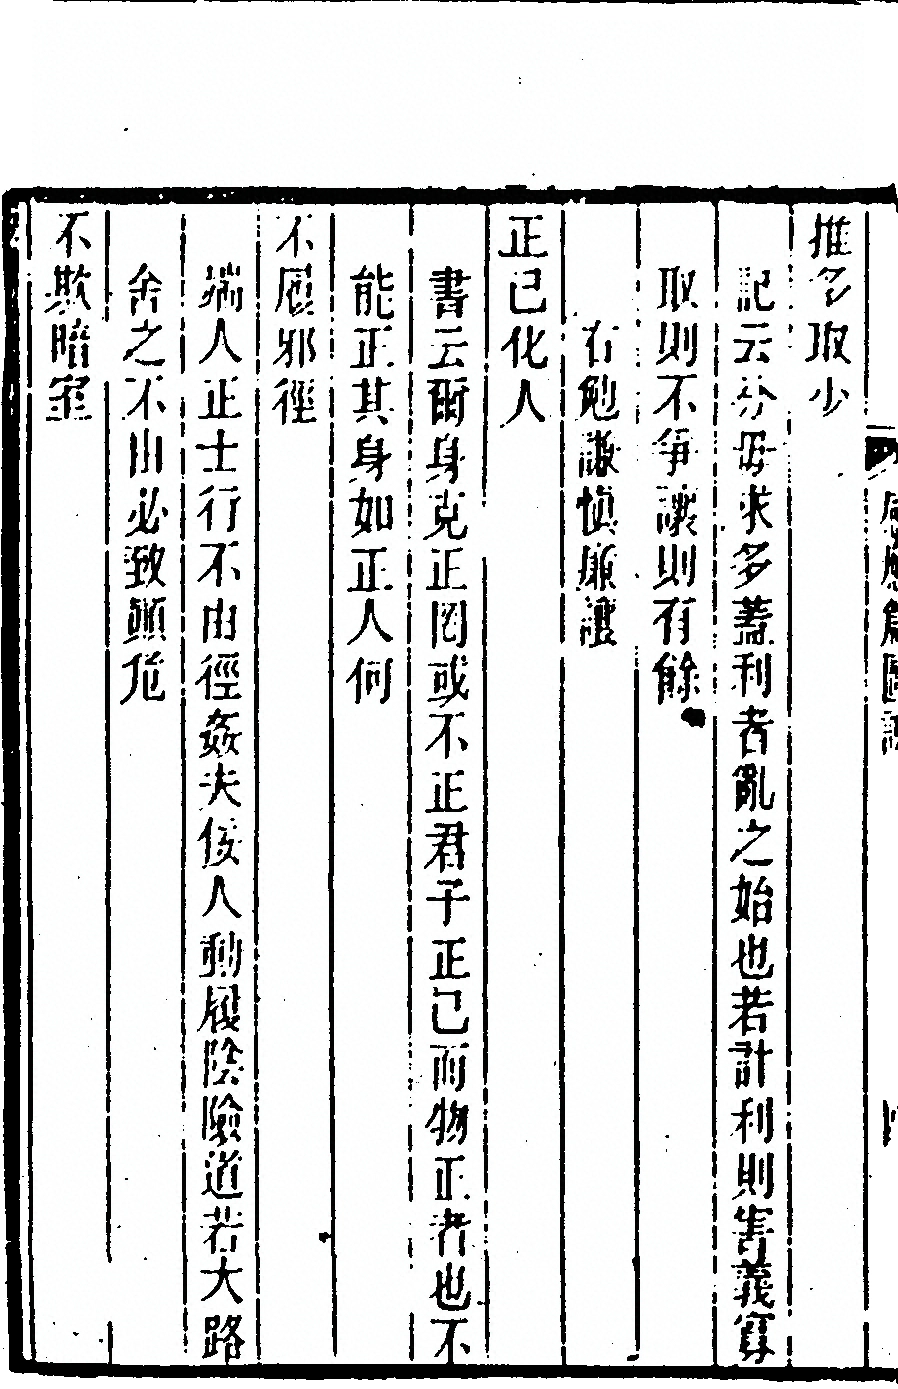 推多取少
記云分毋求多蓋利者亂之始也若計利則害義寡
取則不爭讓則有餘
右勉謙慎廉讓
正己化人
書云爾身克正罔或不正君子正己而物正者也不
能正其身如正人何
不履邪徑
端人正士行不由徑姦夫佞人動履陰險道若大路
舍之不由必致顛危
不欺暗室